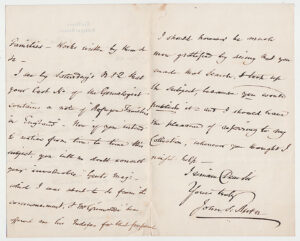 Families – Works written by them &
to –
I see by Saturday's N & Q that
your last No of the Genealogist
contains a note of Refugee Families
in England – Now if you intend
to notice from time to time this
subject, you will no doubt consult
your invaluable Gent's Mag:
which I was about to do from its
commencement, & Mr
offered me his Indexes for that purpose
I should however be much
more gratified by seeing that you
made that Search, & took up
the subject, because you would
it – and I should have
the pleasure of referring to my
Collection, whenever you thought I
might help –
I remain Dear Sir
Yours truly
John S.